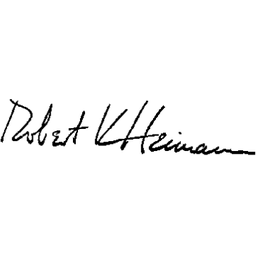 Robert K Heimann